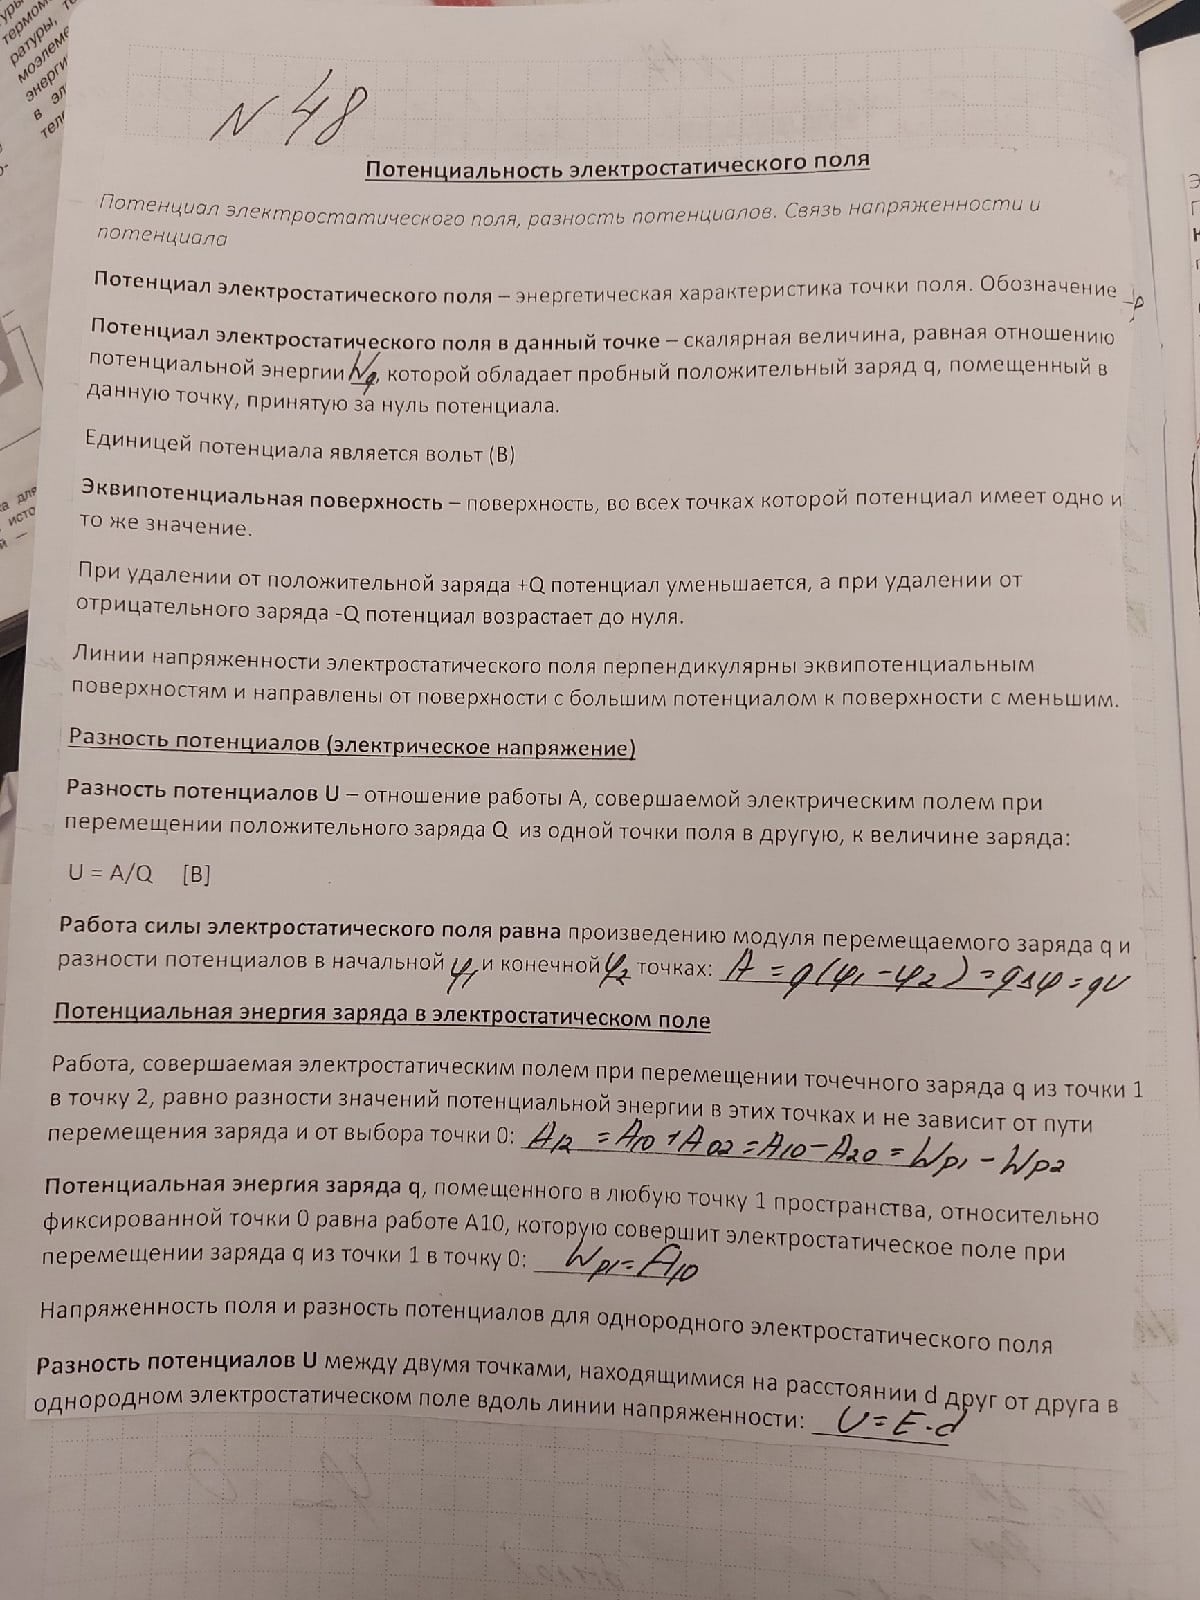 N 48
Потенциальность электростатического поля
Потенциал электростатического поля, разность потенциалов. Связь напряженности и
потенциала
Потенциал электростатического поля – энергетическая характеристика точки поля. Обозначение
Потенциал электростатического поля в данный точке – скалярная величина, равная отношению
потенциальной энергии Wq, которой обладает пробный положительный заряд q, помещенный в
данную точку, принятую за нуль потенциала.
Единицей потенциала является вольт (В)
Эквипотенциальная поверхность – поверхность, во всех точках которой потенциал имеет одно и
то же значение.
При удалении от положительной заряда +Q потенциал уменьшается, а при удалении от
отрицательного заряда -Q потенциал возрастает до нуля.
Линии напряженности электростатического поля перпендикулярны эквипотенциальным
поверхностям и направлены от поверхности с большим потенциалом к поверхности с меньшим.
Разность потенциалов (электрическое напряжение)
Разность потенциалов U – отношение работы А, совершаемой электрическим полем при
перемещении положительного заряда Q из одной точки поля в другую, к величине заряда:
U = A/Q [В]
Работа силы электростатического поля равна произведению модуля перемещаемого заряда q и
разности потенциалов в начальной φ1 и конечной φ2 точках: A = q(φ1 - φ2) = qΔφ = qU
Потенциальная энергия заряда в электростатическом поле
Работа, совершаемая электростатическим полем при перемещении точечного заряда q из точки 1
в точку 2, равно разности значений потенциальной энергии в этих точках и не зависит от пути
перемещения заряда и от выбора точки 0: A12 = A10 + A02 = A10 - A20 = Wp1 - Wp2
Потенциальная энергия заряда q, помещенного в любую точку 1 пространства, относительно
фиксированной точки 0 равна работе А10, которую совершит электростатическое поле при
перемещении заряда q из точки 1 в точку 0: Wp1 = A10
Напряженность поля и разность потенциалов для однородного электростатического поля
Разность потенциалов U между двумя точками, находящимися на расстоянии d друг от друга в
однородном электростатическом поле вдоль линии напряженности: U = E · d